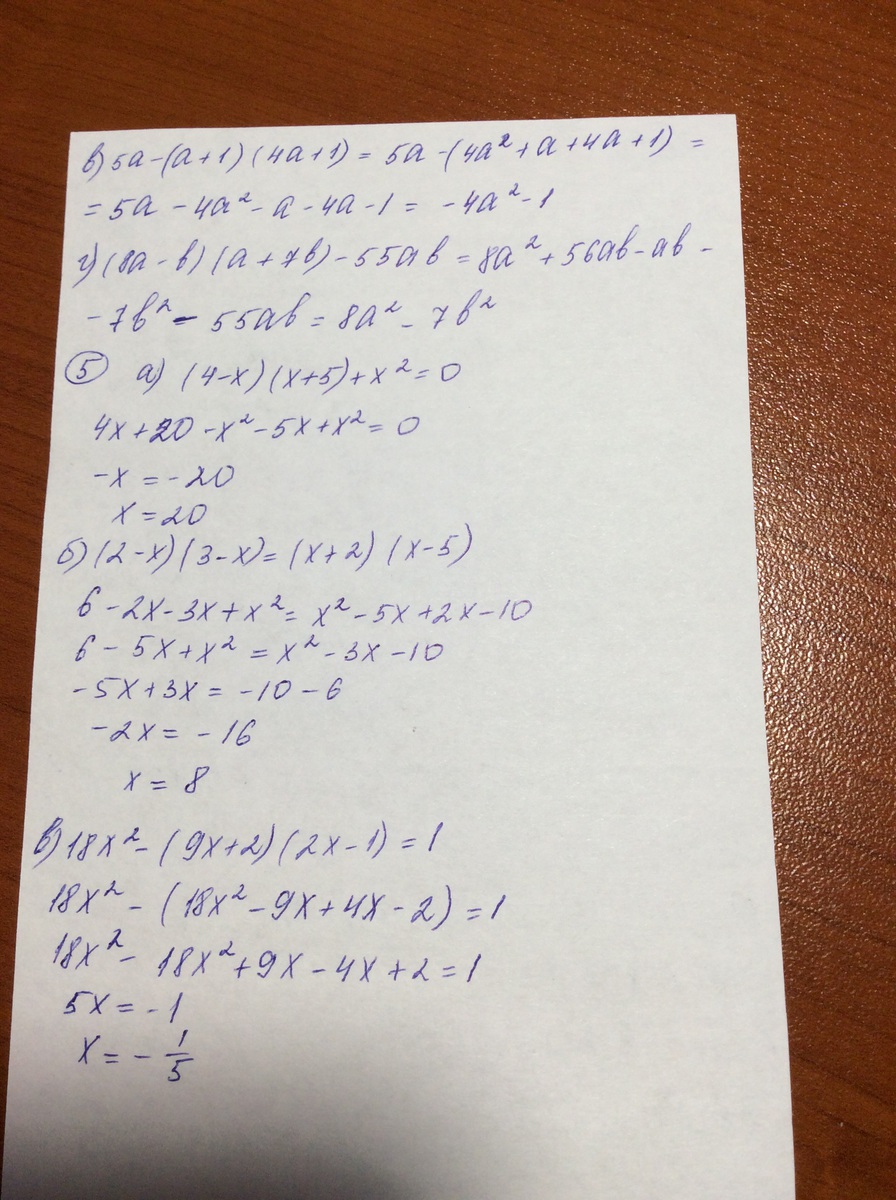 в) 5a-(a+1)(4a+1) = 5a-(4a²+a+4a+1) =
= 5a - 4a² - a - 4a - 1 = -4a² - 1
г) (8a-b)(a+7b) - 55ab = 8a² + 56ab - ab -
- 7b² - 55ab = 8a² - 7b²
5 a) (4-x)(x+5)+x² = 0
4x+20-x²-5x+x² = 0
-x = -20
x = 20
б) (2-x)(3-x) = (x+2)(x-5)
6-2x-3x+x² = x²-5x+2x-10
6-5x+x² = x²-3x-10
-5x+3x = -10-6
-2x = -16
x = 8
в) 18x² - (9x+2)(2x-1) = 1
18x² - (18x²-9x+4x-2) = 1
18x² - 18x²+9x-4x+2 = 1
5x = -1
x = - 1/5